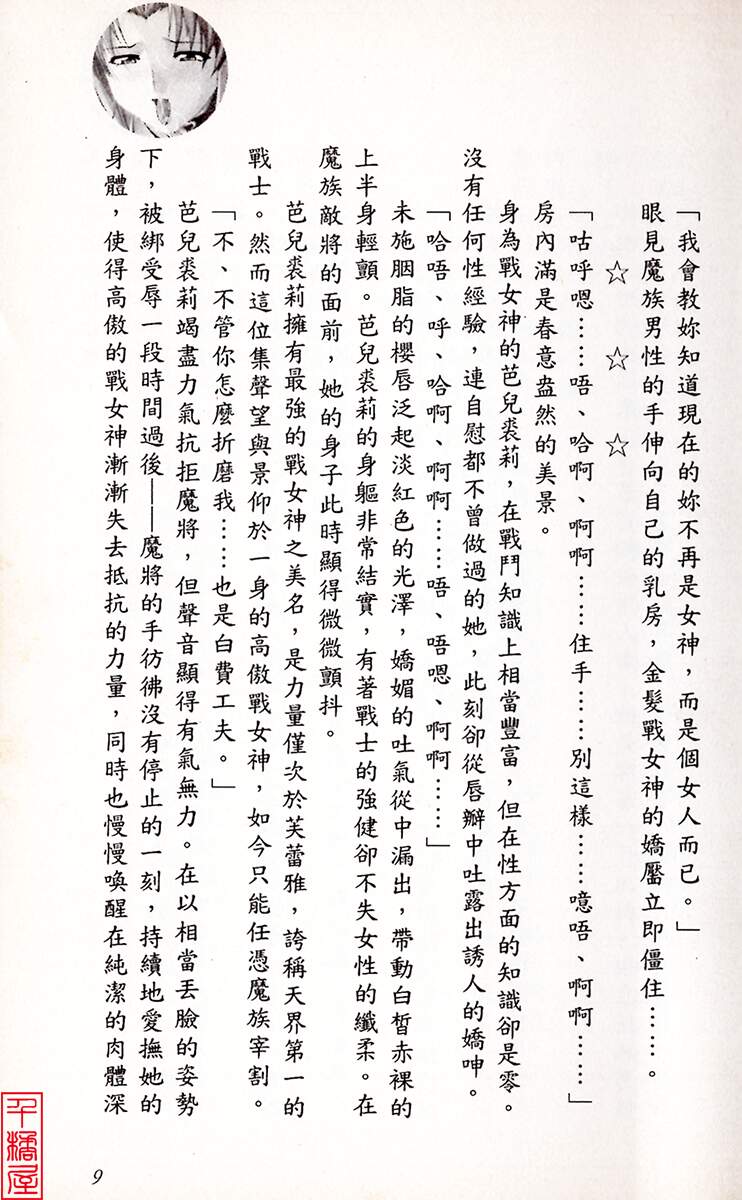 「我會教妳知道現在的妳不再是女神，而是個女人而已。」
眼見魔族男性的手伸向自己的乳房，金髮戰女神的嬌靨立即僵住……。
☆　☆　☆
「咕呼嗯……唔、哈啊、啊啊……住手……別這樣……噫唔、啊啊……」
房內滿是春意盎然的美景。
身為戰女神的芭兒裘莉，在戰鬥知識上相當豐富，但在性方面的知識卻是零。
沒有任何性經驗，連自慰都不曾做過的她，此刻卻從唇瓣中吐露出誘人的嬌呻。
「哈唔、呼、哈啊、啊啊……唔、唔嗯、啊啊……」
未施胭脂的櫻唇泛起淡紅色的光澤，嬌媚的吐氣從中漏出，帶動白皙赤裸的
上半身輕顫。芭兒裘莉的身軀非常結實，有著戰士的強健卻不失女性的纖柔。在
魔族敵將的面前，她的身子此時顯得微微顫抖。
芭兒裘莉擁有最強的戰女神之美名，是力量僅次於芙蕾雅，誇稱天界第一的
戰士。然而這位集聲望與景仰於一身的高傲戰女神，如今只能任憑魔族宰割。
「不、不管你怎麼折磨我……也是白費工夫。」
芭兒裘莉竭盡力氣抗拒魔將，但聲音顯得有氣無力。在以相當丟臉的姿勢
下，被綁受辱一段時間過後——魔將的手彷彿沒有停止的一刻，持續地愛撫她的
身體，使得高傲的戰女神漸漸失去抵抗的力量，同時也慢慢喚醒在純潔的肉體深
9
千橘屋